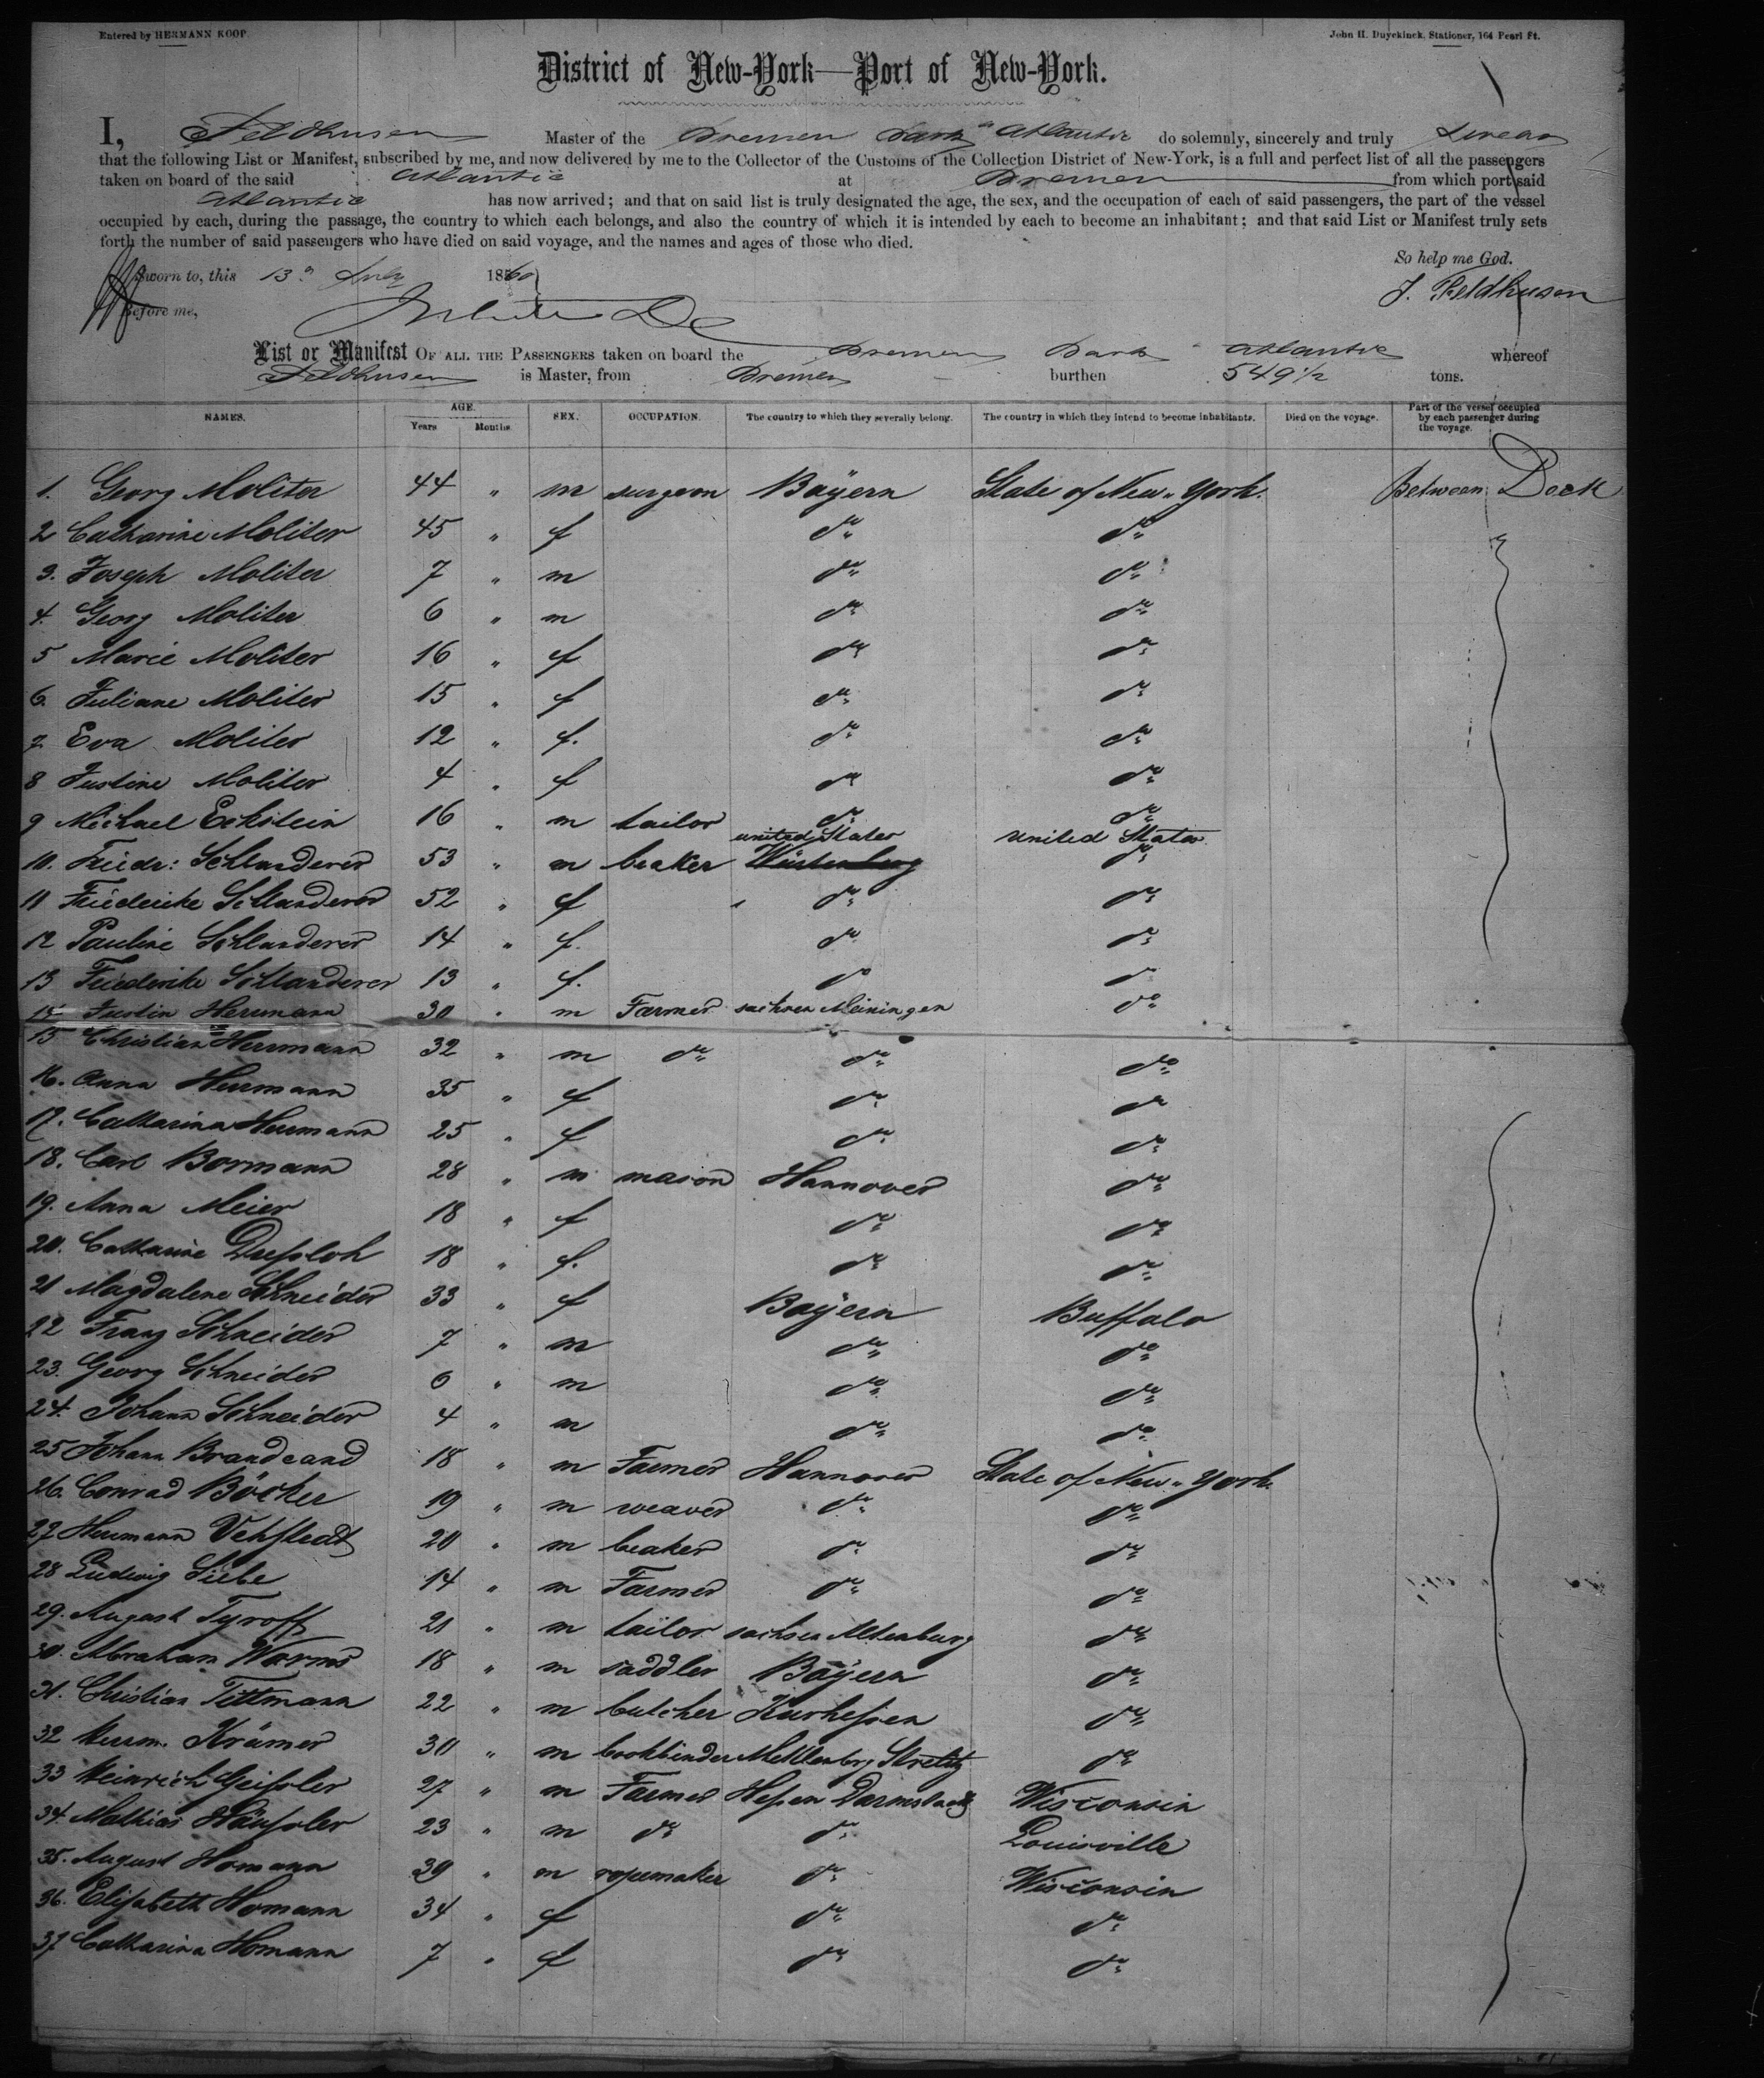 Entered by HERMANN KOOP.
John H. Duyckinck, Stationer, 164 Pearl St.
District of New-York—Port of New-York.
I, Feldhusen Master of the Bremen Bark "Atlantic do solemnly, sincerely and truly swear
that the following List or Manifest, subscribed by me, and now delivered by me to the Collector of the Customs of the Collection District of New-York, is a full and perfect list of all the passengers
taken on board of the said Atlantic at Bremen from which port said
Atlantic has now arrived; and that on said list is truly designated the age, the sex, and the occupation of each of said passengers, the part of the vessel
occupied by each, during the passage, the country to which each belongs, and also the country of which it is intended by each to become an inhabitant; and that said List or Manifest truly sets
forth the number of said passengers who have died on said voyage, and the names and ages of those who died.
So help me God.
Sworn to, this 13" July 1860
J. Feldhusen
Before me,
List or Manifest OF ALL THE PASSENGERS taken on board the Bremen Bark Atlantic whereof
Feldhusen is Master, from Bremen burthen 549 1/2 tons.
NAMES. AGE. Years Months. SEX. OCCUPATION. The country to which they severally belong. The country in which they intend to become inhabitants. Died on the voyage. Part of the vessel occupied by each passenger during the voyage.
1. Georg Moliter 44 " m surgeon Bayern State of New-York. Between Deck
2 Catharine Moliter 45 " f do do
3. Joseph Moliter 7 " m do do
4. Georg Moliter 6 " m do do
5 Marie Moliter 16 " f do do
6. Juliane Moliter 15 " f do do
7. Eva Moliter 12 " f. do do
8 Justine Moliter 4 " f do do
9 Michael Eckstein 16 " m tailor do do
united States United States
10. Friedr: Schlanderer 53 " m beaker Würtenberg do
11 Friedericke Schlanderer 52 " f do do
12 Pauline Schlanderer 14 " f. do do
13 Friederike Schlanderer 13 " f. do do
14 Justin Herrmann 30 " m Farmer sachsen Meiningen do
15 Christian Herrmann 32 " m do do do
16. Anna Herrmann 35 " f do do
17. Catharina Herrmann 25 " f do do
18. Carl Bormann 28 " m mason Hannover do
19. Anna Meier 18 " f do do
20. Catharine Dressloh 18 " f. do do
21 Magdalene Schneider 33 " f Bayern Buffalo
22 Franz Schneider 7 " m do do
23. Georg Schneider 6 " m do do
24. Johann Schneider 4 " m do do
25 Johann Brandeand 18 " m Farmer Hannover State of New-York.
26. Conrad Böcker 19 " m weaver do do
27 Herrmann Vehstedt 20 " m beaker do do
28 Ludwig Siebe 14 " m Farmer do do
29. August Tyroff 21 " m tailor sachsen Altenburg do
30. Abraham Worms 18 " m saddler Bayern do
31. Christian Tittmann 22 " m butcher Kurhessen do
32 Herrm. Krämer 30 " m bookbinder Mecklenbrg Strelitz do
33 Heinrich Geissler 27 " m Farmer Hessen Darmstadt Wisconsin
34. Mathias Häussler 23 " m do do Louisville
35. August Homann 39 " m ropemaker do Wisconsin
36. Elisabeth Homann 34 " f do do
37. Catharina Homann 7 " f do do